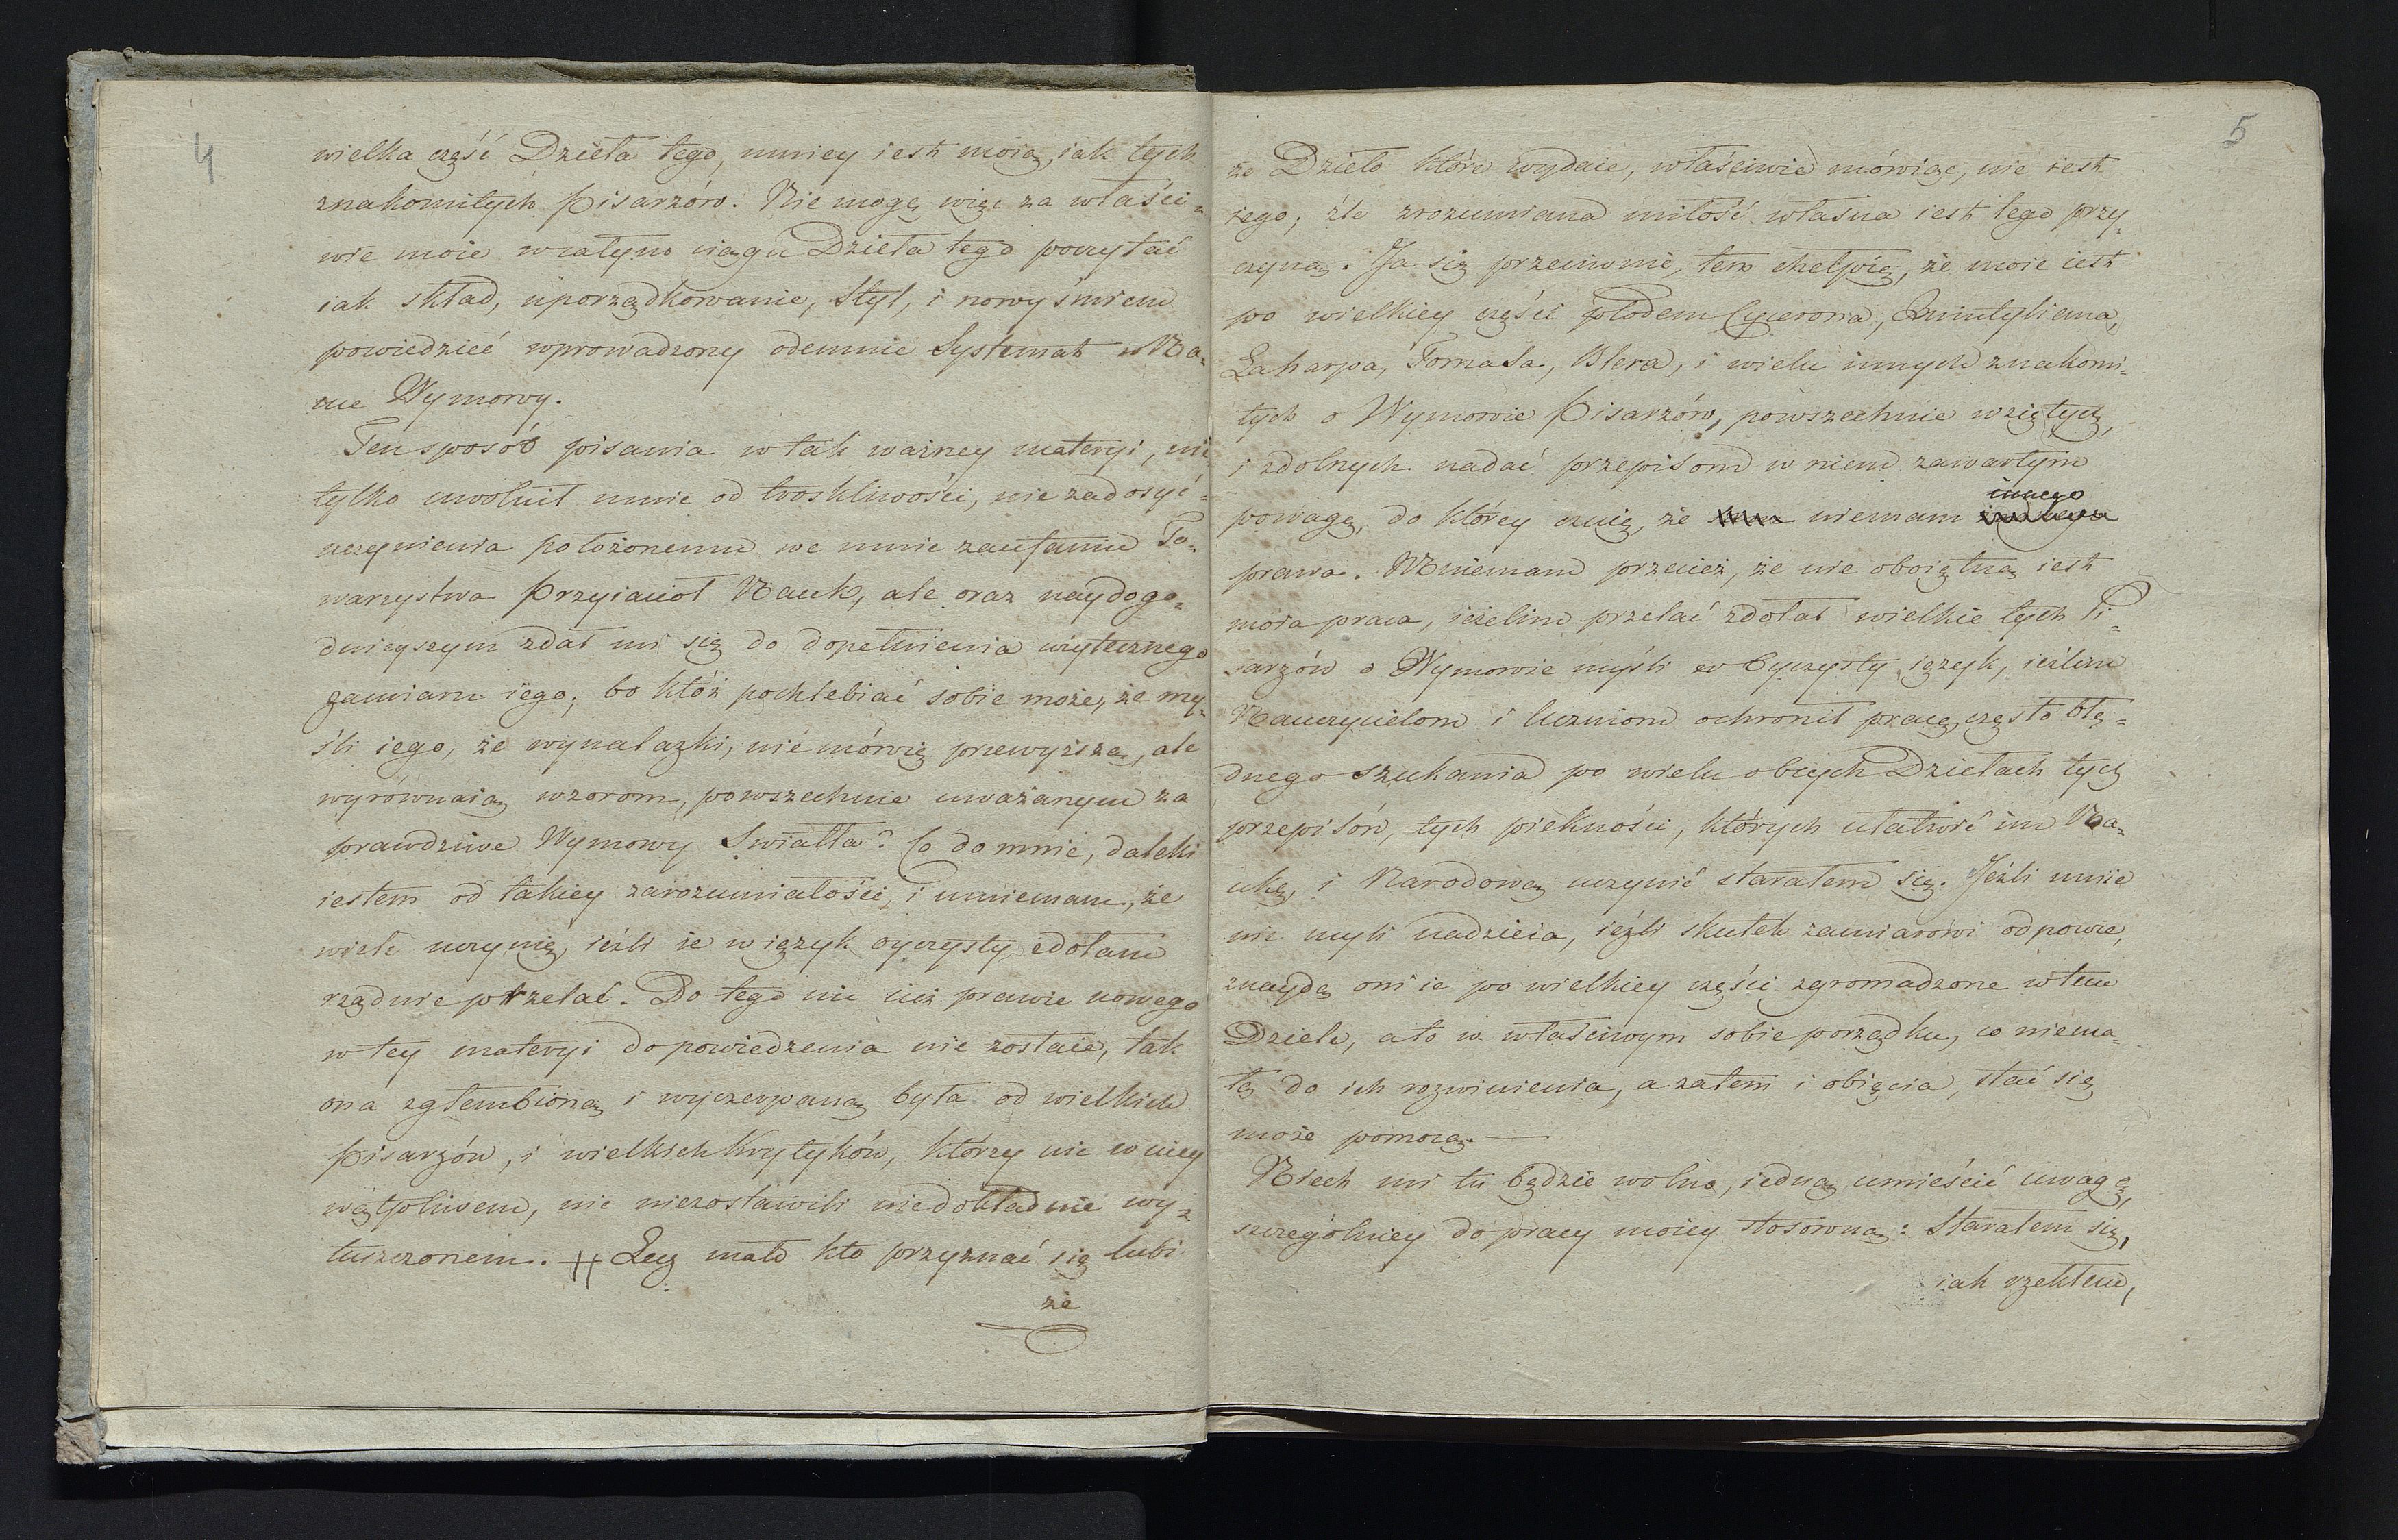 4
wielka część Dzieła tego, mniey iest moią, iak tych
znakomitych Pisarzów. Nie mogę więc za właści=
wie moie w całym ciągu Dzieła tego poczytać
iak skład, uporządkowanie, Styl, i nowy śmiem
powiedzieć wprowadzony odemnie Systemat w Na=
uce Wymowy.
Ten sposób pisania w tak ważney materyi, nie
tylko uwolnił mnie od troskliwości, nie zadosyć=
uczynienia położonemu we mnie zaufaniu To=
warzystwa Przyiaciół Nauk, ale oraz naydogo=
dnieyszym zdał mi się do dopełnienia użytecznego
zamiaru iego; bo któż pochlebiać sobie może, że my=
śli iego, że wynalazki, nié mówię przewyższą, ale
wyrównaią wzorom, powszechnie uważanym za
prawdziwe Wymowy Swiatła? Co do mnie, daleki
iestem od takiey zarozumiałości, i mniemam, że
wiele uczynię, ieźli ie w ięzyk oyczysty zdołam
rządnie przelać. Do tego nic iuż prawie nowego
w tey materyi do powiedzenia nie zostaie, tak
ona zgłembioną i wyczerpaną była od wielkich
Pisarzów, i wielkich Krytyków, którzy nic w niey
wątpliwem, nic niezostawili niedokładnie wy=
tłuszczonem. # Lecz mało kto przyznać się lubi
że
5
że Dzieło które wydaie, właściwie mówiąc, nie iest
iego; źle zrozumiana miłość własna iest tego przy=
czyną. Ja się przeciwnie, tem chełpię, że moie iest
po wielkiey części płodem Cycerona, Quintyliana,
Laharpa, Tomasa, Blera, i wielu innych znakomi=
tych o Wymowie Pisarzów, powszechnie wziętych,
i zdolnych nadać przepisom w niem zawartym
innego
powagę, do którey czuię, że niemam
prawa. Mniemam przecież, że nie oboiętną iest
moia praca, ieżelim przelać zdołał wielkie tych Pi=
sarzów o Wymowie myśli w Oyczysty ięzyk, ieźlim
Nauczycielom i Uczniom ochronił pracę, często błę=
dnego szukania po wielu obcych Dziełach tych
przepisów, tych piękności, których ułatwić im Na=
ukę, i Narodową uczynić starałem się. Jeźli mnie
nie myli nadzieia, ieźli skutek zamiarowi odpowie,
znaydą oni ie po wielkiey części zgromadzone w tem
Dziele, a to w właściwym sobie porządku, co niema=
łą do ich rozwinienia, a zatem i obięcia, stać się
może pomocą. —
Niech mi tu będzie wolno, iedną umieścić uwagę,
szczególniey do pracy moiey stosowną: Starałem się,
iak rzekłem,